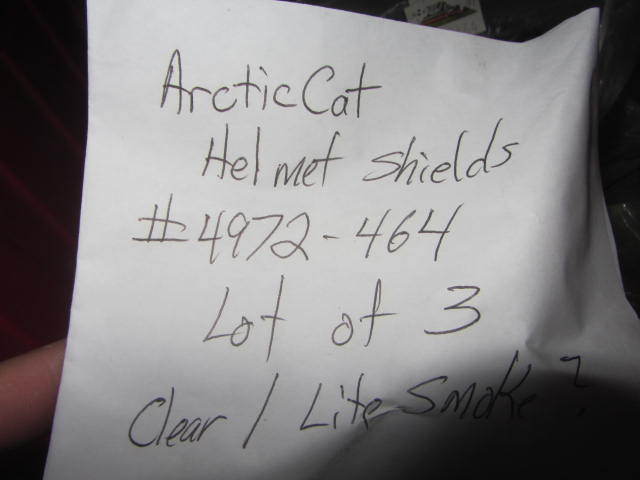 Arctic Cat
Helmet Shields
#4972-464
Lot of 3
Clear / Lite Smoke?